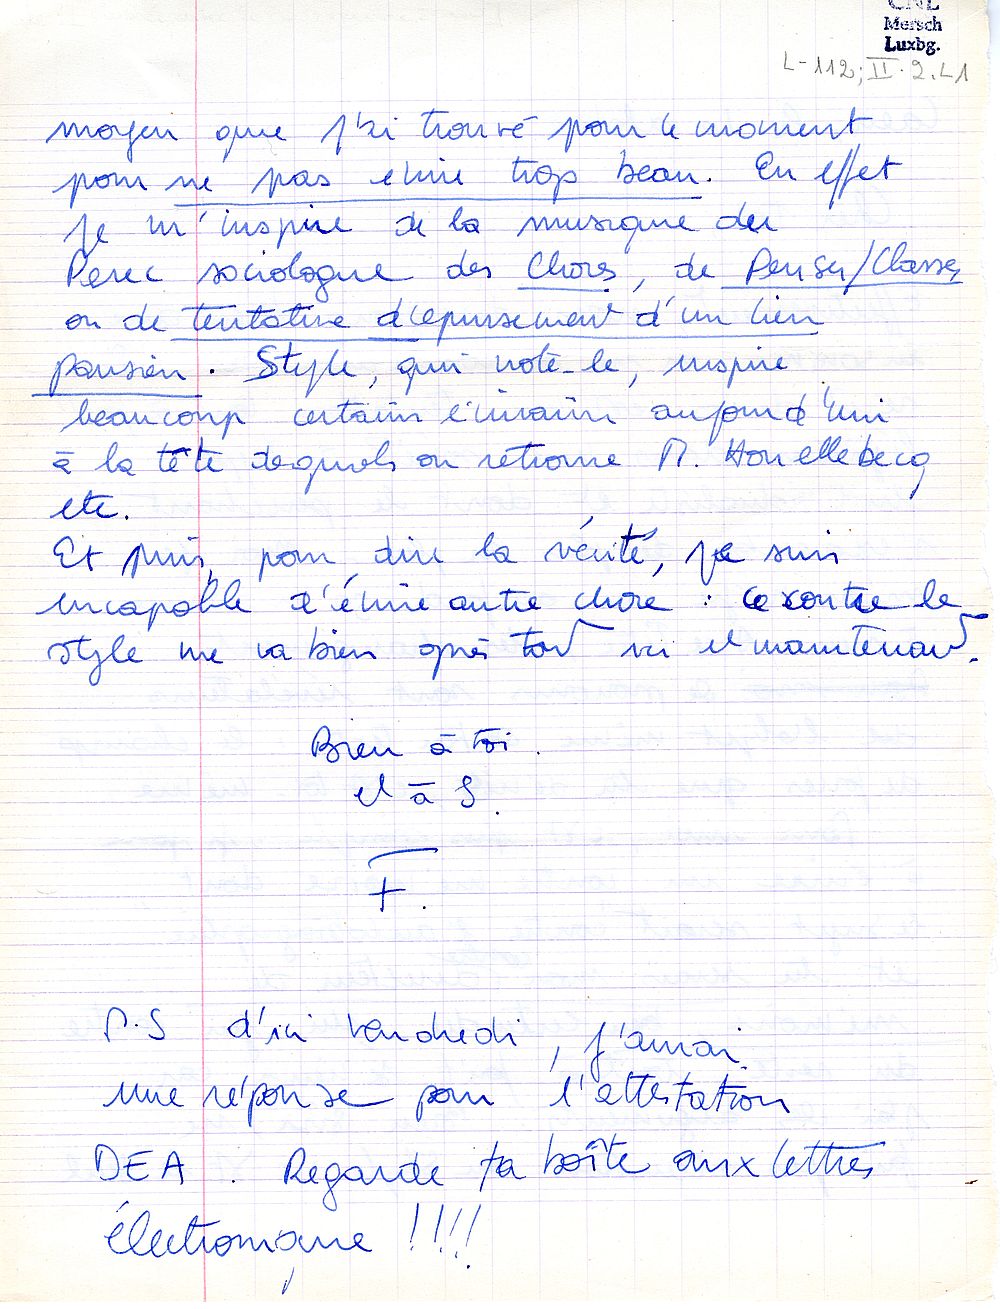 CNL
Mersch
Luxbg.
L-112; II. 2. L1
moyen que j'ai trouvé pour le moment
pour ne pas écrire trop beau. En effet
je m'inspire de la musique du
Perec sociologue des Choses, de Penser/Classer,
ou de tentative d'épuisement d'un lieu
parisien. Style, qui note-le, inspire
beaucoup certains écrivains aujourd'hui
à la tête desquels on retrouve M. Houellebecq
etc.
Et puis, pour dire la vérité, je suis
incapable d'écrire autre chose : ce contre le
style me va bien après tout ici et maintenant.
Bien à toi.
et à S.
F.
P.S d'ici vendredi, j'aurai
une réponse pour l'attestation
DEA. Regarde ta boîte aux lettres
électronique !!!!